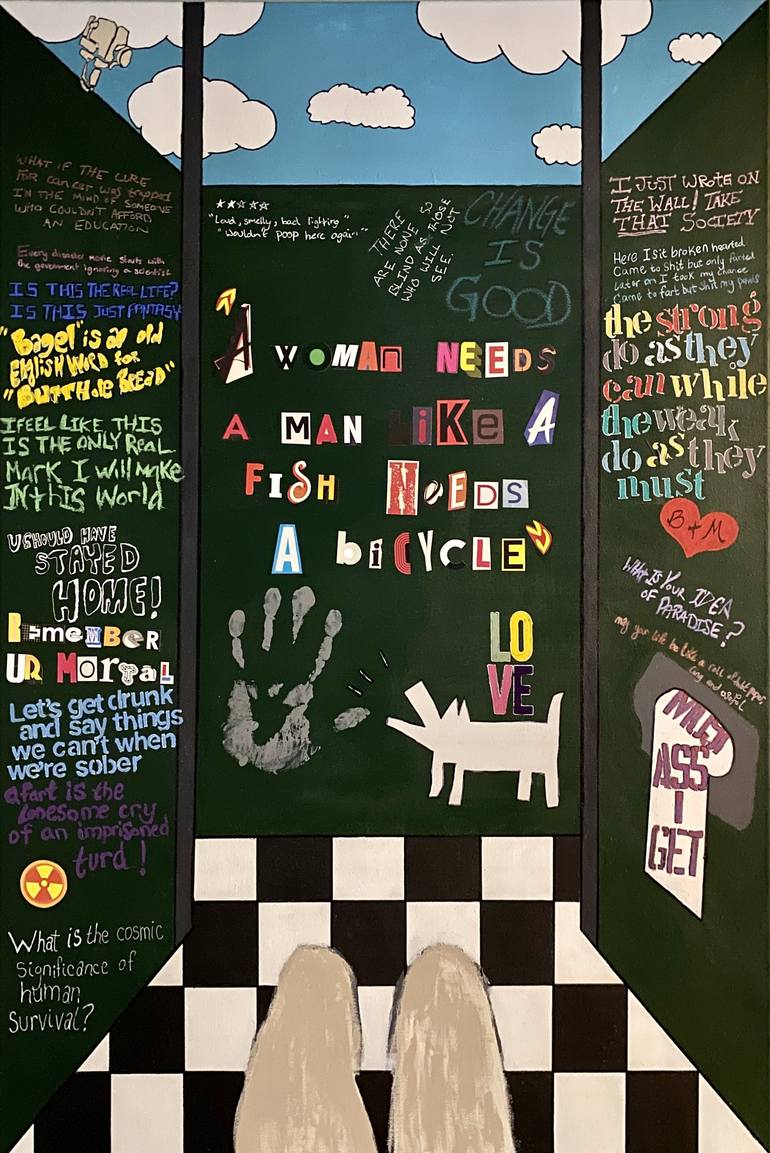 WHAT IF THE CURE
FOR cancer was trapped
IN THE MIND OF SOMEONE
WHO COULDN'T AFFORD
AN EDUCATION
Every disaster movie starts with
the government ignoring a scientist
IS THIS THE REAL LIFE?
IS THIS JUST FANTASY
"Bagel" is an old
English Word for
"BUTTHole BReAD"
I FEEL LIKE THIS
IS THE ONLY REAL
MARK I will Make
IN this World
U SHOULD HAVE
STAYED
HOME!
Remember
UR Mortal
Let's get drunk
and say things
we can't when
we're sober
a fart is the
lonesome cry
of an imprisoned
turd!
What is the cosmic
significance of
human
Survival?
★★☆☆☆
"Loud, smelly, bad lighting"
"Wouldn't poop here again"
THERE
ARE NONE SO
BLIND AS THOSE
WHO WILL NOT
SEE.
CHANGE
IS
GOOD
"A WOMAN NEEDS
A MAN LiKe A
FISH NeEDS
A biCYCLE"
LO
VE
I JUST WROTE ON
THE WALL! TAKE
THAT SOCIETY
Here I sit broken hearted
Came to shit but only farted
Later on I took my chance
Came to fart but shit my pants
the strong
do as they
can while
the weak
do as they
must
B + M
WHAT IS YOUR IDEA
OF PARADISE?
may your life be like a roll of toilet paper,
long and useful
ASS
I
GET